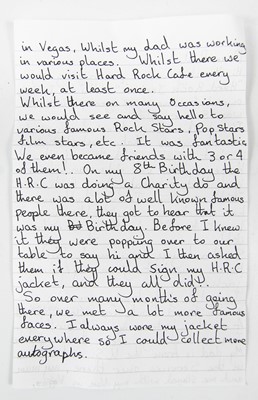 in Vegas, Whilst my dad was working
in various places. Whilst there we
would visit Hard Rock Cafe every
week, at least once.
Whilst there on many Occasions,
we would see and say hello to
various famous Rock Stars, Pop Stars
film stars, etc. It was fantastic
We even became friends with 3 or 4
of them!. On my 8th Birthday the
H.R.C was doing a Charity do and
there was alot of well known famous
people there, they got to hear that it
was my Birthday. Before I knew
it they were popping over to our
table to say hi and I then asked
them if they could sign my H.R.C
jacket, and they all did!.
So over many months of going
there, we met a lot more famous
faces. I always wore my jacket
everywhere so I could collect more
autographs.